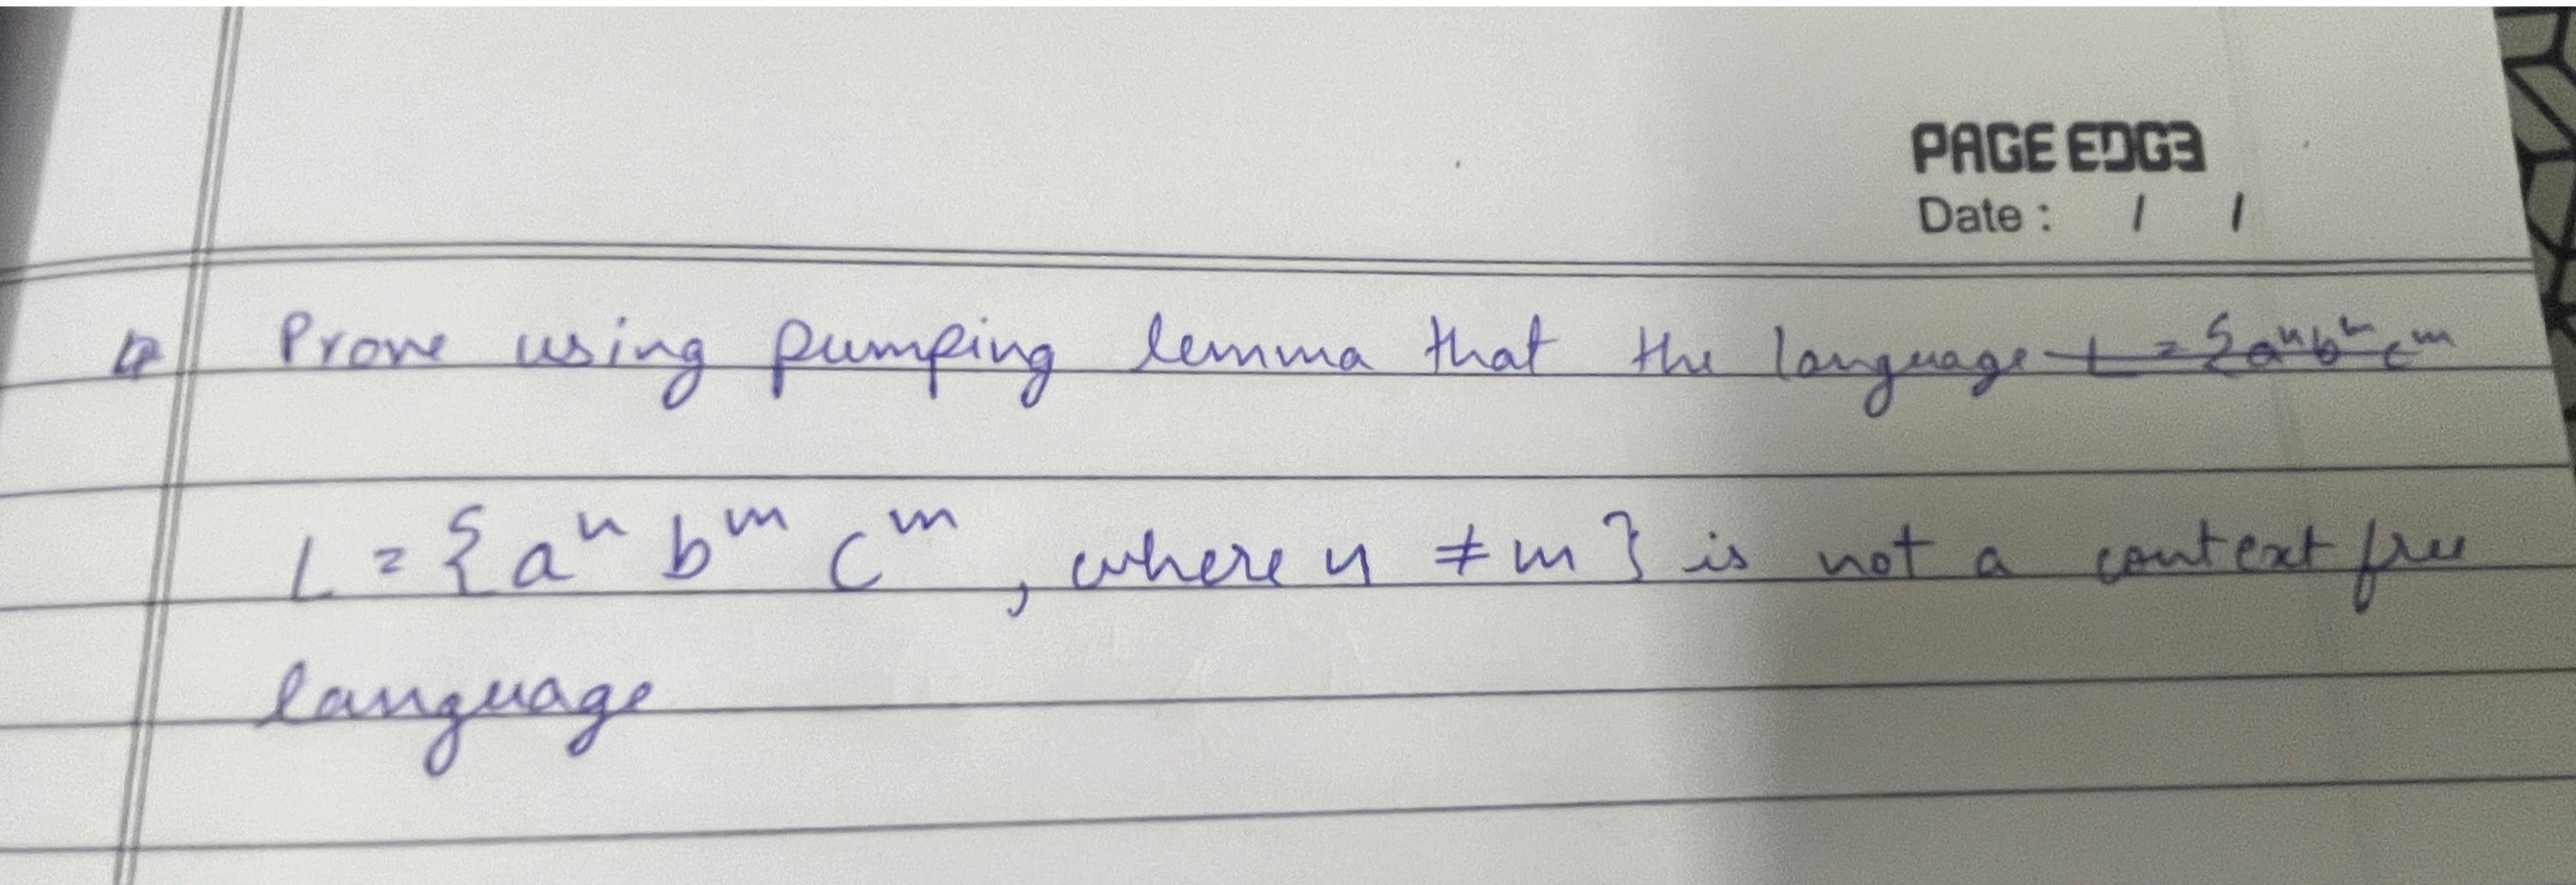 PAGE EDGE
Date : / /
Q Prove using pumping lemma that the language L = {aⁿbⁿcᵐ
L = {aⁿ bᵐ cᵐ, where n ≠ m } is not a context free
language